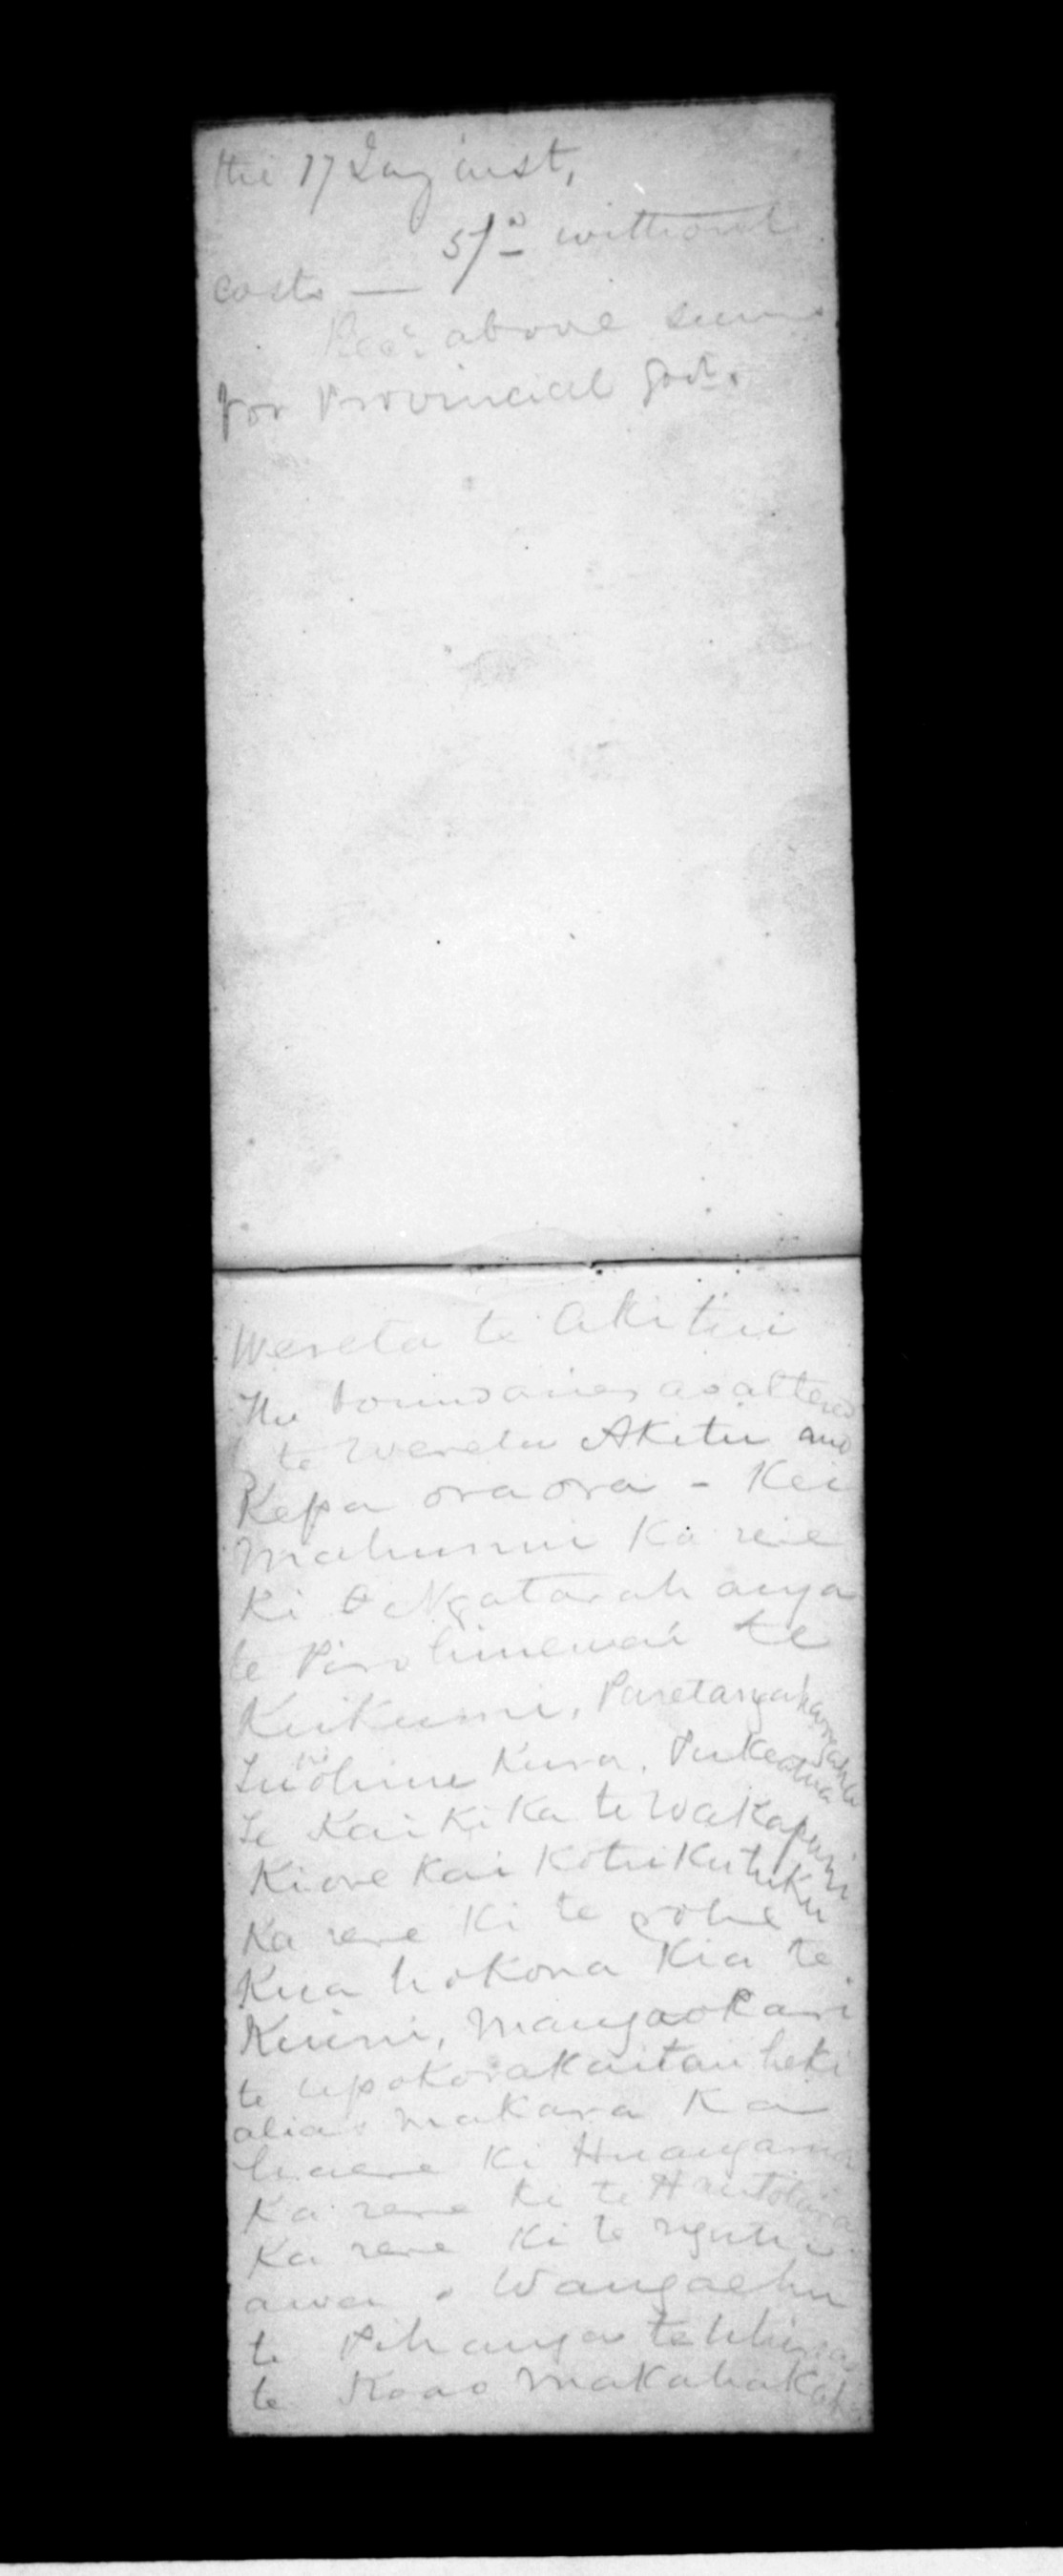 the 17 day inst,
5/- without
costs —
Recd. above sum
for Provincial Govt.
Wereta te Akitu
The boundaries as altered
by te Wereta Akitu and
Kepa oraora - Kei
Mahunui Ka rere
Ki o Ngatarahanga
te Pirohinewai te
Kuikuini, Paretangakaongaha
Kura, Pukeatua
te Kaikika te Wakapuni
Kiore Kai Kotukutuku
Ka rere Ki te rohe
Kua hokona Kia te
Kuini, Mangaokari
te upokorakaitauheki
alias makara Ka
haere Ki Huangarua
Ka rere ki te
Ka rere Ki te ngutu
awa o Wangaehu
te Pihanga te
te Roao Makahakaha